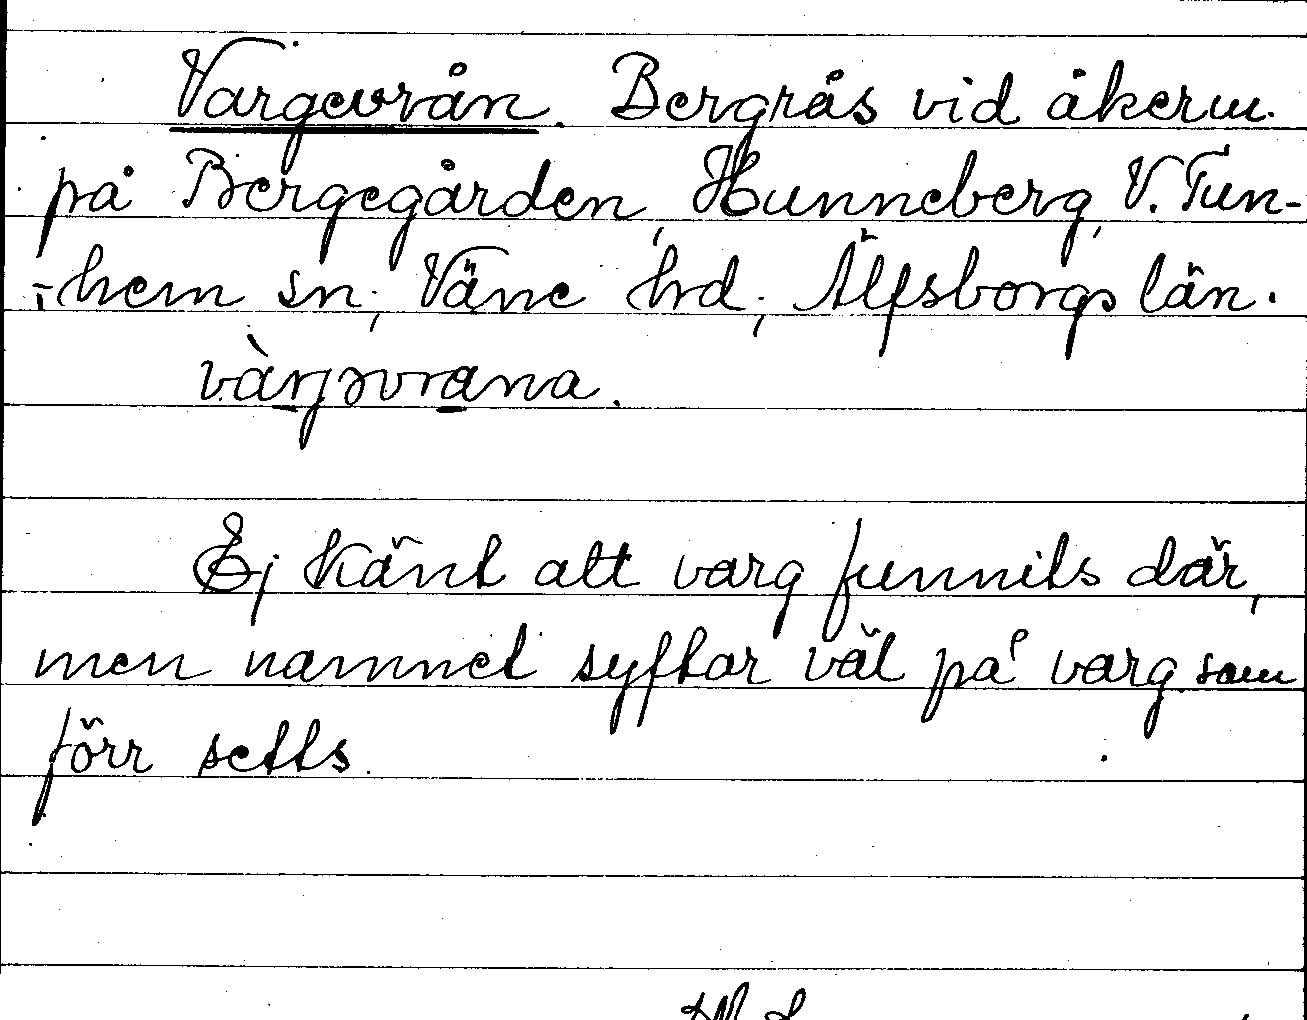 Vargevrån. Bergrås vid åkerm.
på Bergegården, Hunneberg, V. Tun-
-hem sn, Väne hrd, Älfsborgs län.
vàrjəvrana.
Ej känt att varg funnits där,
men namnet syftar väl på varg som
förr setts.